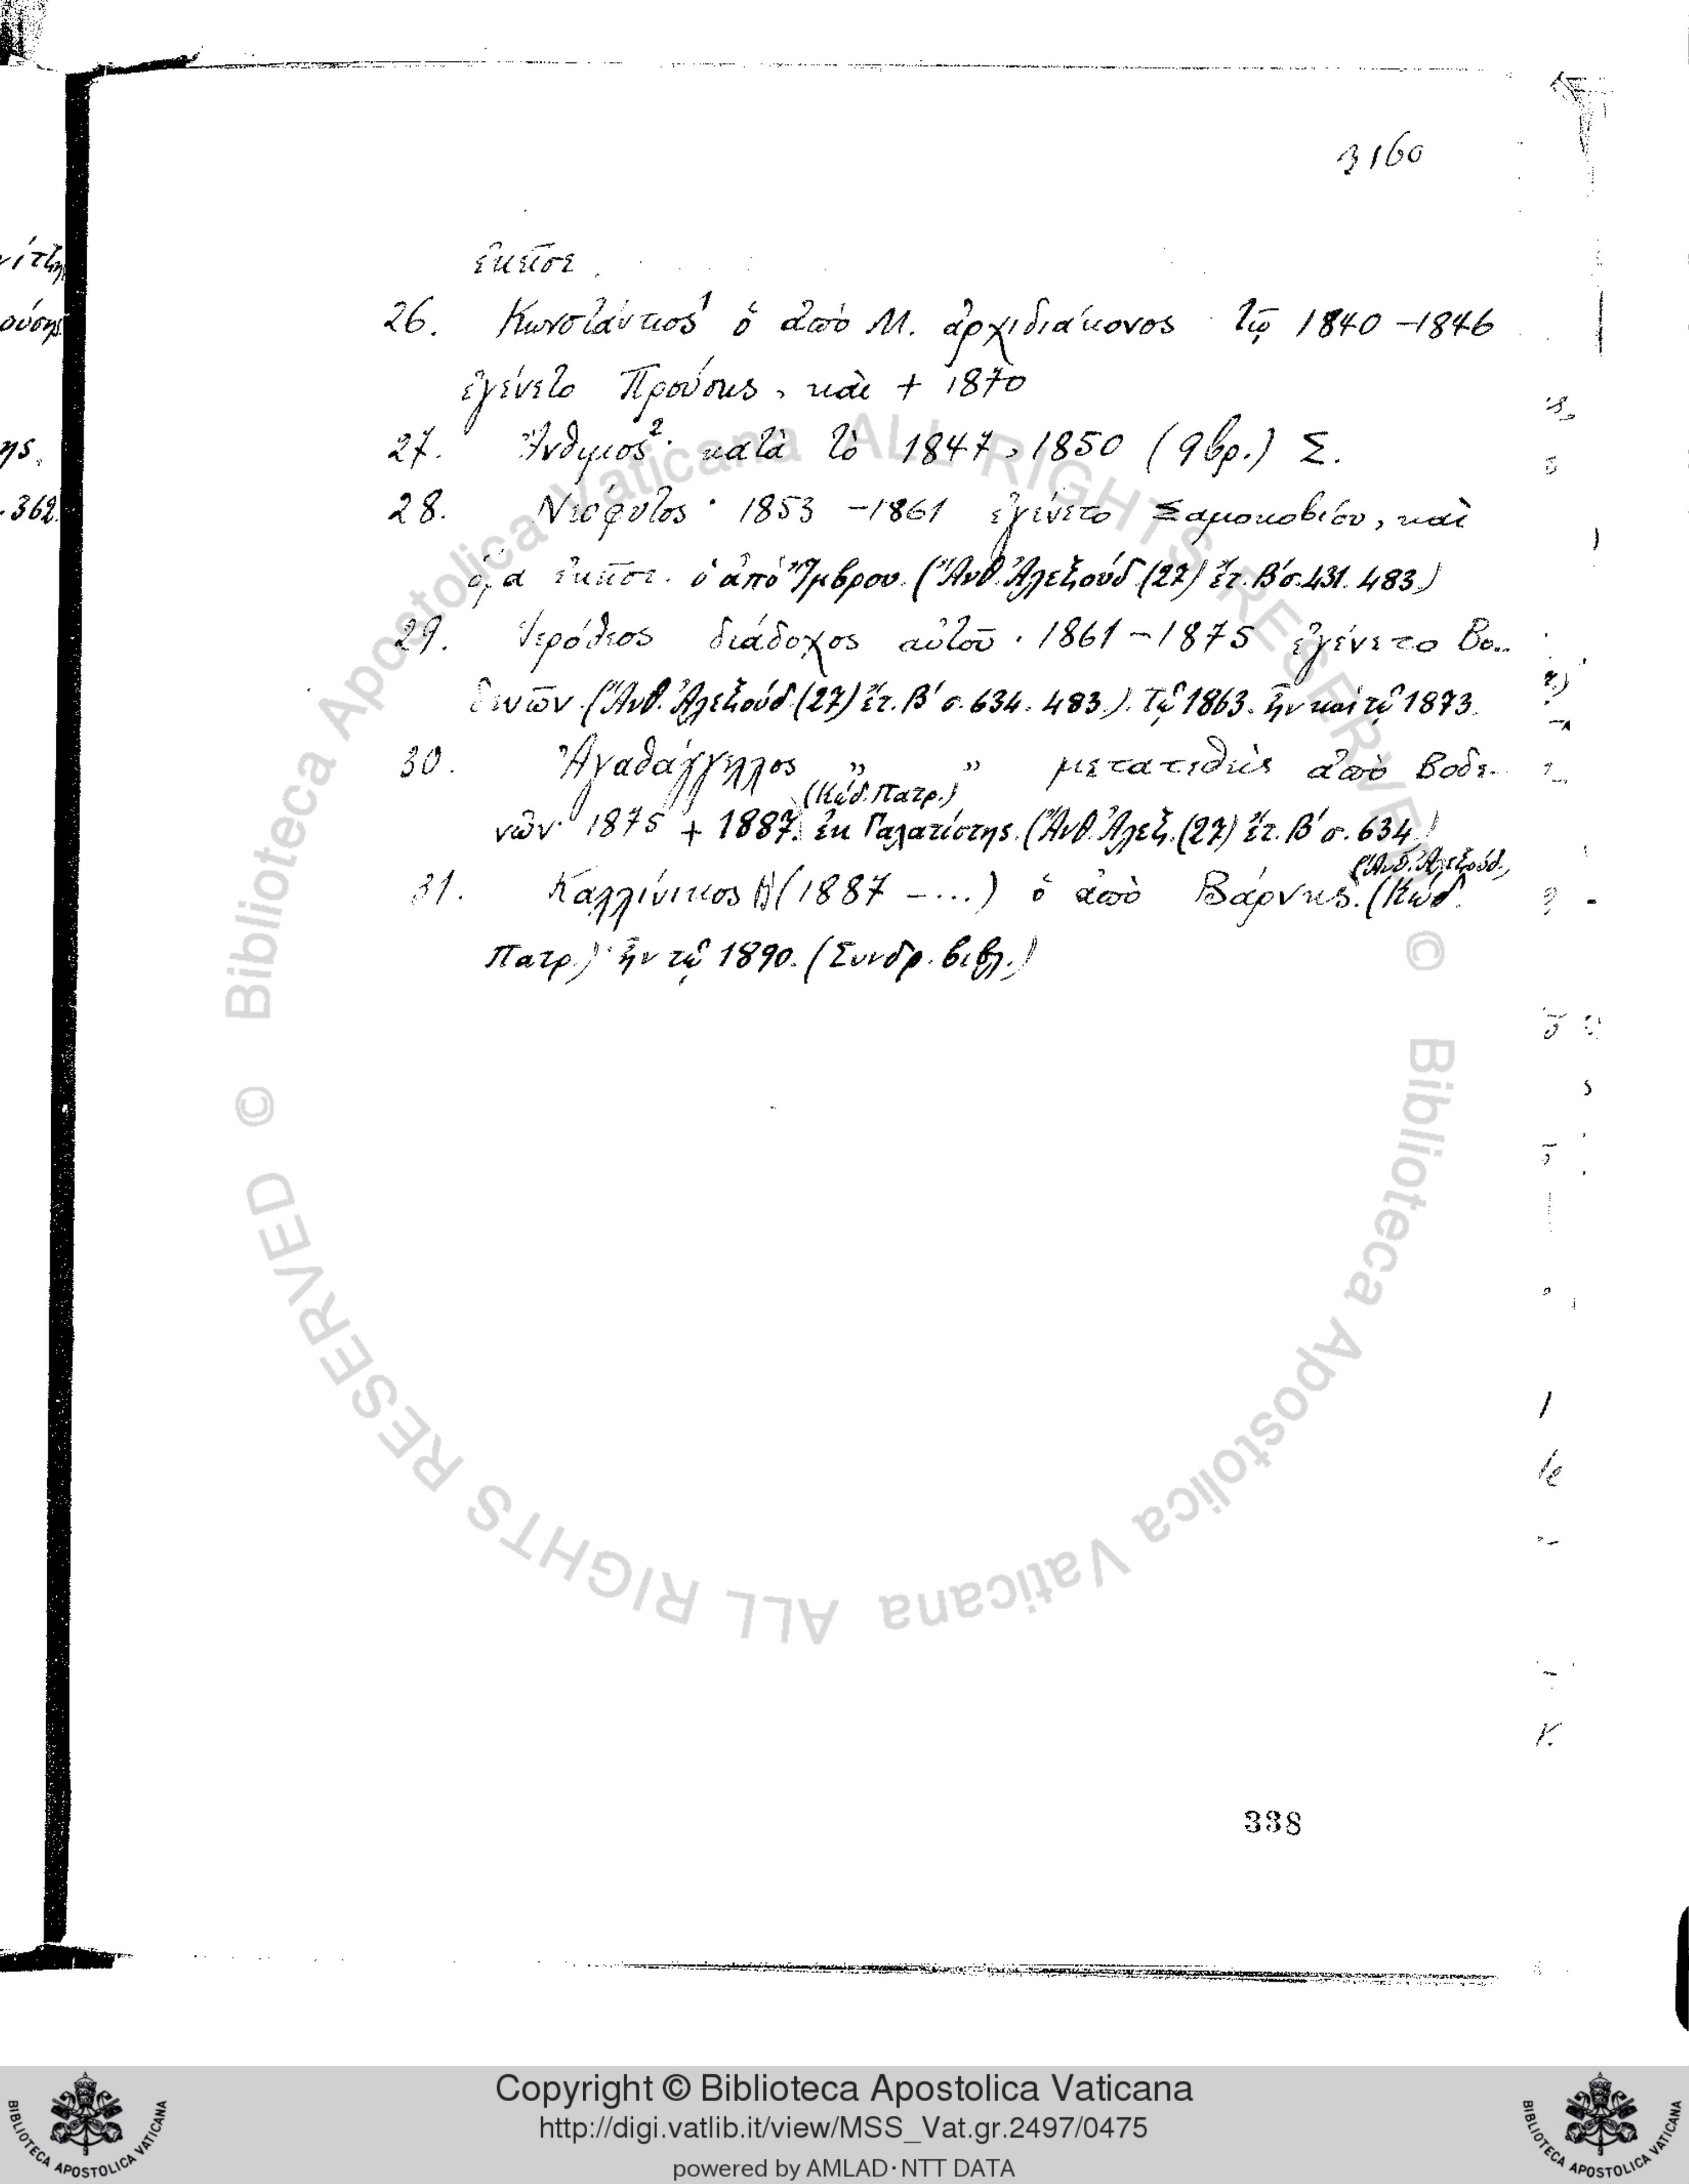 3160
ἐκεῖσε.
26. Κωνστάντιος¹ ὁ ἀπὸ Μ. ἀρχιδιάκονος τῷ 1840 – 1846
ἐγένετο Προύσης, καὶ + 1870
27. Ἄνθιμος²· κατὰ τὸ 1847, 1850 (9βρ.) Σ.
28. Νεόφυτος · 1853 – 1861 ἐγένετο Σαμοκοβίου, καὶ
ὅρα ἐκεῖσε. ὁ ἀπὸ Ἴμβρου. (Ἄνθ. Ἀλεξούδ (27) ἔτ. Β΄ σ. 431. 483)
29. Ἱερόθεος διάδοχος αὐτοῦ · 1861 – 1875 ἐγένετο Βο..
δενῶν. (Ἄνθ. Ἀλεξούδ. (27) ἔτ. Β΄ σ. 634. 483.). Τῷ 1863. ἦν καὶ τῷ 1873.
30. Ἀγαθάγγελος „ „ μετατεθεὶς ἀπὸ Βοδε-
(Κώδ. Πατρ.)
νῶν· 1875 + 1887. ἐκ Γαλατίστης. (Ἄνθ. Ἀλεξ. (27) ἔτ. Β΄ σ. 634)
(Ἀνθ. Ἀλεξούδ.,
31. Καλλίνικος (1887 – ...) ὁ ἀπὸ Βάρνης. (Κώδ.
Πατρ.)· ἦν τῷ 1890. (Συνδρ. βιβλ.)
338
© Biblioteca Apostolica Vaticana ALL RIGHTS RESERVED © Biblioteca Apostolica Vaticana ALL RIGHTS RESERVED
Copyright © Biblioteca Apostolica Vaticana
http://digi.vatlib.it/view/MSS_Vat.gr.2497/0475
powered by AMLAD·NTT DATA
BIBLIOTECA APOSTOLICA VATICANA
BIBLIOTECA APOSTOLICA VATICANA